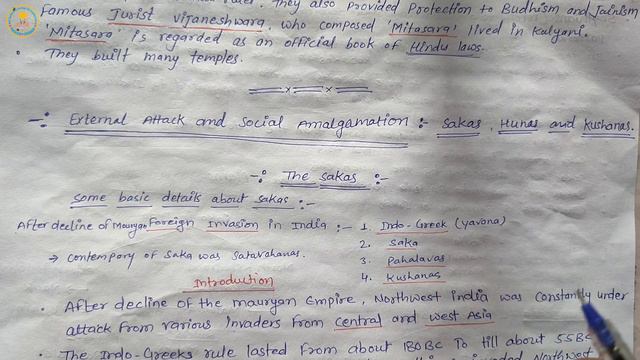 They also provided Protection to Budhism and Jainism
Famous Jurist Vijaneshwara, who composed 'Mitasara' lived in Kalyani.
'Mitasara' is regarded as an official book of Hindu laws.
• They built many temples.
-: External Attack and Social Amalgamation :- Sakas, Hunas and Kushanas.
-: The Sakas :-
Some basic details about Sakas :-
After decline of Mauryan Foreign Invasion in India :- 1. Indo-Greek (yavona)
2. Saka
→ Contempory of Saka was Satavahanas. 3. Pahalavas
4. Kushanas
Introduction
• After decline of the mauryan Empire, Northwest india was constantly under
attack from various invaders from Central and west Asia
• The Indo-Greeks rule lasted from about 180BC To till about 55BC
Northwest